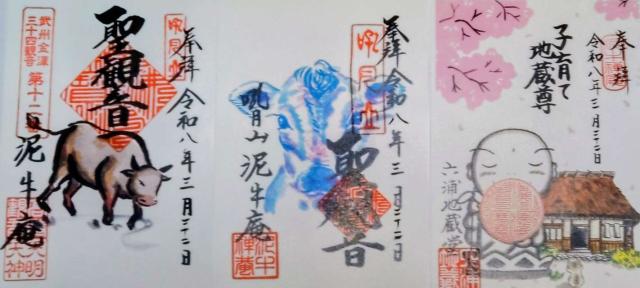 奉拝
令和八年三月二十二日
聖観音
吼月山
武州金澤
三十四観音
第十二
泥牛庵
奉拝
令和八年三月二十二日
聖観音
吼月山
吼月山泥牛庵
泥牛
禅庵
奉拝
令和八年三月二十二日
子育て
地蔵尊
六浦地蔵堂